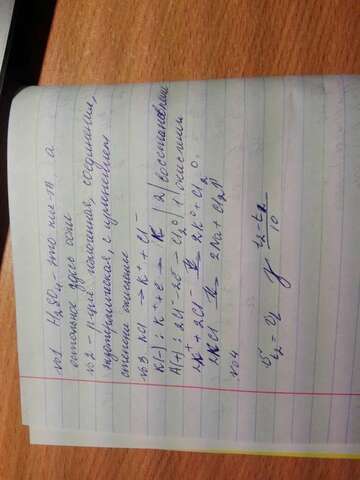 №1 H₂SO₄ - это кислота.
остальное здесь соли
№2 - р-ция необратимая, соединения,
экзотермическая, с изменением
степени окисления
№3 KCl → K⁺ + Cl⁻
K(-): K⁺ + e → K⁰ | 2 | восстановление
A(+): 2Cl⁻ - 2e → Cl₂⁰ | 1 | окислен
2K⁺ + 2Cl⁻ → 2K⁰ + Cl₂⁰
2KCl → 2Na + Cl₂↑
№4
t₂ = γ t₂-t₁
10